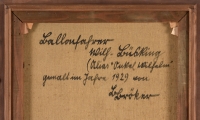 Ballonfahrer
Wilh. Bücking
(Alias "Onkel Wilhelm"
gemalt im Jahre 1929 von
Bröker